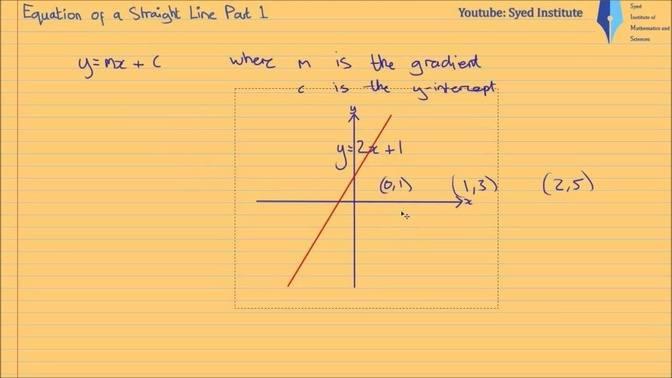 Equation of a Straight Line Part 1
Youtube: Syed Institute
Syed
Institute of
Mathematics and
Sciences
y=mx + c where m is the gradient
c is the y-intercept
y
y=2x+1
(0,1) (1,3) (2,5)
x